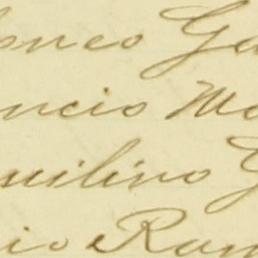 onco Ga
ncio Mo
quilino G
io Ram